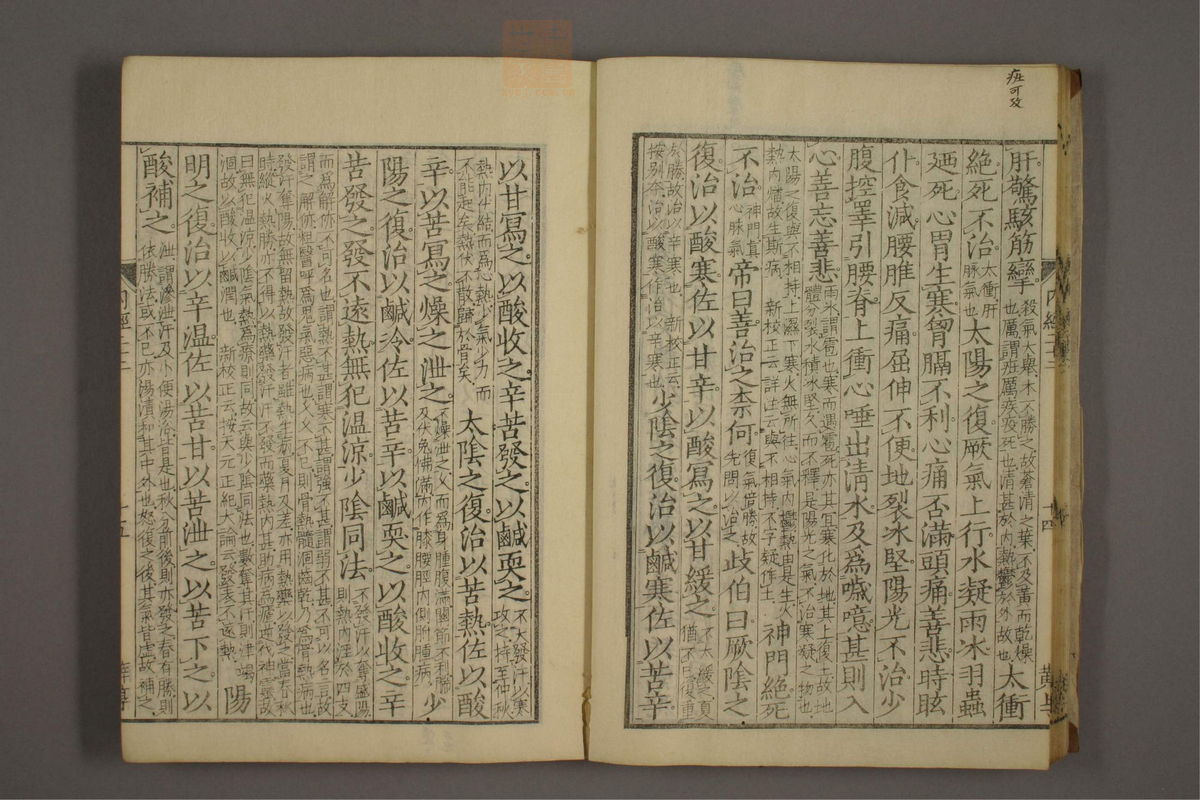 肝驚駭筋攣
殺氣大舉木不勝之故蒼清之葉不及黃而乾燥
也厲謂疵厲疾疫死也清甚於內熱鬱於外故也
太衝
絕死不治
太衝肝
脉氣也
太陽之復厥氣上行水凝雨冰羽蟲
廼死心胃生寒胷膈不利心痛否滿頭痛善悲時眩
仆食減腰脽反痛屈伸不便地裂冰堅陽光不治少
腹控睪引腰脊上衝心唾出清水及爲噦噫甚則入
心善忘善悲
雨冰謂雹也寒而遇雹死亦其宜寒化於地其上復土故地
體分裂水積冰堅久而不釋是陽光之氣不治寒凝之物也
太陽之復與不相持上濕下寒火無所往心氣內鬱熱由是生火
熱內燔故生斯病 新校正云詳注云與不相持不字疑作土
神門絕死
不治
神門真
心脉氣
帝曰善治之柰何
復氣倍勝故
先問以治之
歧伯曰厥陰之
復治以酸寒佐以甘辛以酸寫之以甘緩之
不大緩之夏
猶不已復重
於勝故治以辛寒也 新校正云
按別本治以酸寒作治以辛寒也
少陰之復治以鹹寒佐以苦辛
內經
十四
以甘寫之以酸收之辛苦發之以鹹耎之
不大發汗以寒
攻之持至仲秋
熱內伏結而爲心熱少氣少力而
不能起矣熱伏不散歸於骨矣
太陰之復治以苦熱佐以酸
辛以苦寫之燥之泄之
不燥泄之久而爲身腫腹滿關節不利腨
及伏兔怫滿內作膝腰脛內側胕腫病
少
陽之復治以鹹冷佐以苦辛以鹹耎之以酸收之辛
苦發之發不遠熱無犯温涼少陰同法
不發汗以奪盛陽
則熱內淫於四支
而爲解㑊不可名也謂熱不甚謂寒不甚謂強不甚謂弱不甚不可以名言故
謂之解㑊粗醫呼爲鬼氣惡病也久久不已則骨熱髓涸齒乾乃爲骨熱病也
發汗奪陽故無留熱故發汗者雖熱生病夏月及差亦用熱藥以發之當春秋
時縱火熱勝亦不得以熱藥發汗汗不發而藥熱內甚助病爲瘧逆伐神靈故
曰無犯温涼少陰氣熱爲療則同故云與少陰同法也數奪其汗則津竭
涸故以酸收以鹹潤也 新校正云按六元正紀大論云發表不遠熱
陽
明之復治以辛温佐以苦甘以苦泄之以苦下之以
酸補之
泄謂滲泄汗及小便湯浴皆是也秋分前後則亦發之春有勝則
依勝法或不已亦湯漬和其中外也怒復之後其氣皆虛故補之